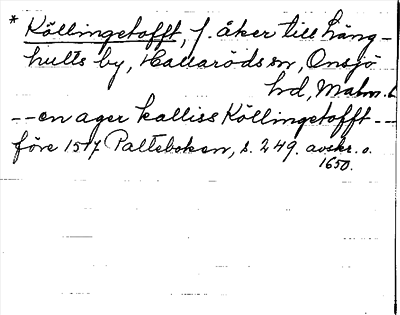 * Köllingetofft, f. åker till Häng-
hults by, Hallaröds sn, Onsjö
hd, Malm. l.
-- en ager kalliss Köllingetofft ---
före 1517 Palteboken, s. 249. avskr. o.
1650.